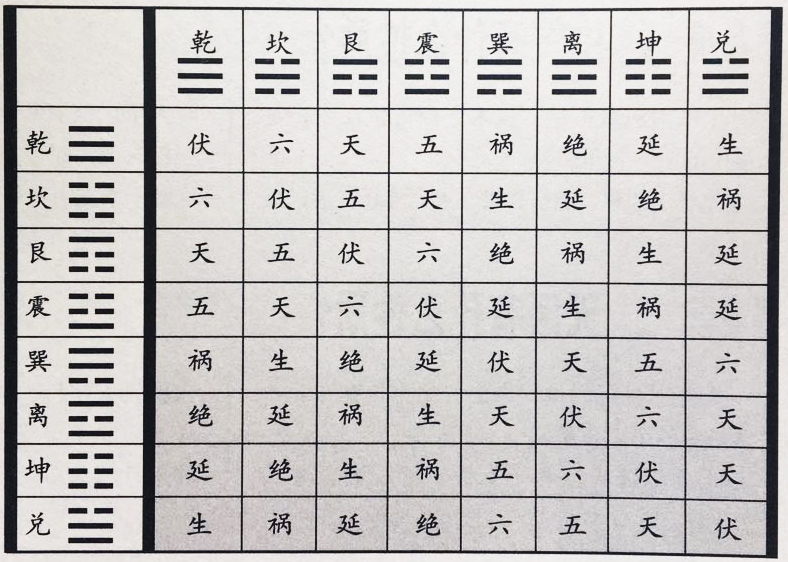 乾 坎 艮 震 巽 离 坤 兑
乾 伏 六 天 五 祸 绝 延 生
坎 六 伏 五 天 生 延 绝 祸
艮 天 五 伏 六 绝 祸 生 延
震 五 天 六 伏 延 生 祸 延
巽 祸 生 绝 延 伏 天 五 六
离 绝 延 祸 生 天 伏 六 天
坤 延 绝 生 祸 五 六 伏 天
兑 生 祸 延 绝 六 五 天 伏